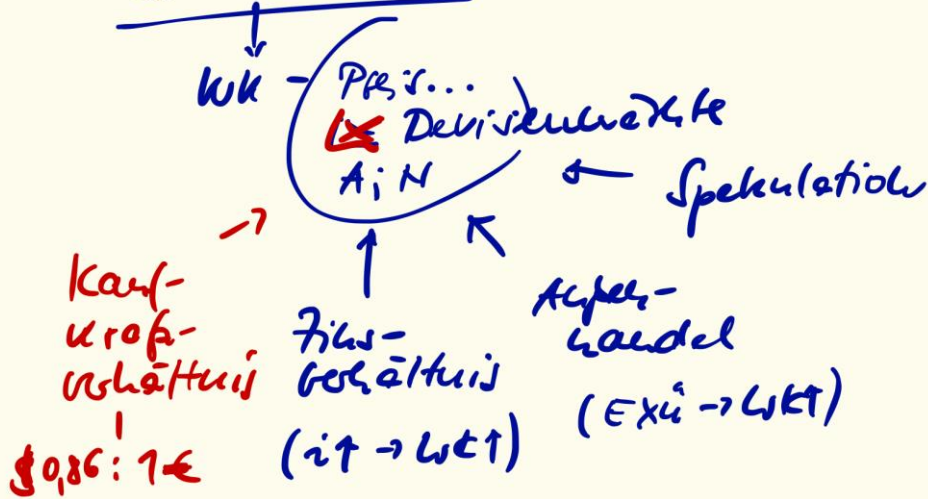 WK - Preis...
Devisenmärkte
A; N
← Spekulation
Kauf-
kraft-
verhältnis
$0,86 : 1€
Zins-
verhältnis
(i↑ → WK↑)
Außen-
handel
(EXü → WK↑)